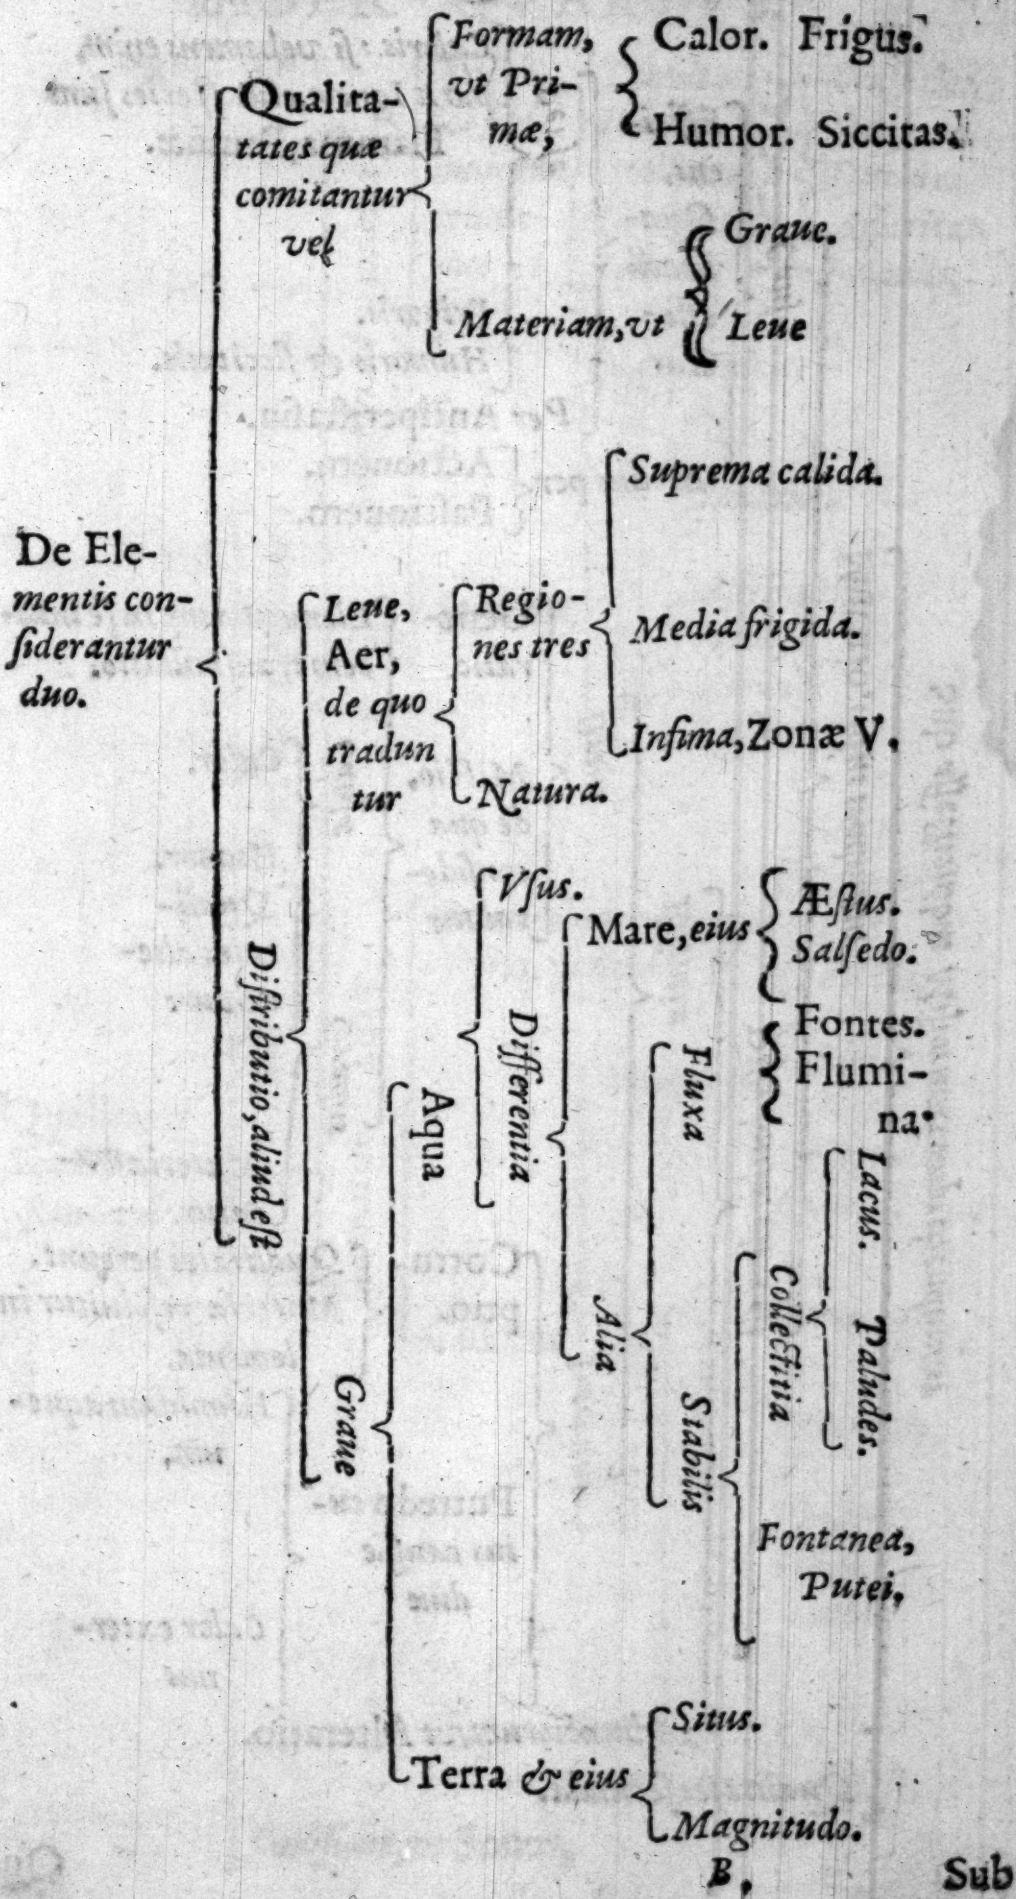 De Ele-
mentis con-
ſiderantur
duo.
Qualita-
tates quæ
comitantur
vel
Formam,
vt Pri-
mæ,
Calor. Frigus.
Humor. Siccitas.
Materiam, vt
Graue.
Leue
Diſtributio, aliud eſt
Leue,
Aer,
de quo
tradun
tur
Regio-
nes tres
Suprema calida.
Media frigida.
Infima, Zonæ V.
Natura.
Graue
Aqua
Vſus.
Differentia
Mare, eius
Æſtus.
Salſedo.
Alia
Fluxa
Fontes.
Flumi-
na.
Stabilis
Collectitia
Lacus.
Paludes.
Fontanea,
Putei.
Terra & eius
Situs.
Magnitudo.
B.
Sub